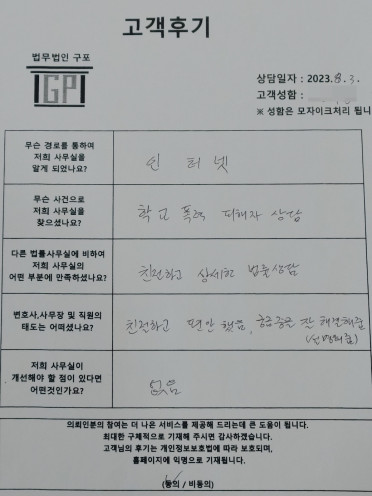 고객후기
법무법인 구포
GP
상담일자 : 2023. 8. 3.
고객성함 :
※ 성함은 모자이크처리 됩니
무슨 경로를 통하여
저희 사무실을
알게 되었나요?
인터넷
무슨 사건으로
저희 사무실을
찾으셨나요?
학교 폭력 피해자 상담
다른 법률사무실에 비하여
저희 사무실의
어떤 부분에 만족하셨나요?
친절하고 상세한 법률상담
변호사,사무장 및 직원의
태도는 어떠셨나요?
친절하고 편안했음, 궁금증을 잘 해결해줌
(설명해줌)
저희 사무실이
개선해야 할 점이 있다면
어떤것인가요?
없음
의뢰인분의 참여는 더 나은 서비스를 제공해 드리는데 큰 도움이 됩니다.
최대한 구체적으로 기재해 주시면 감사하겠습니다.
고객님의 후기는 개인정보보호법에 따라 보호되며,
홈페이지에 익명으로 기재됩니다.
(동의 / 비동의)